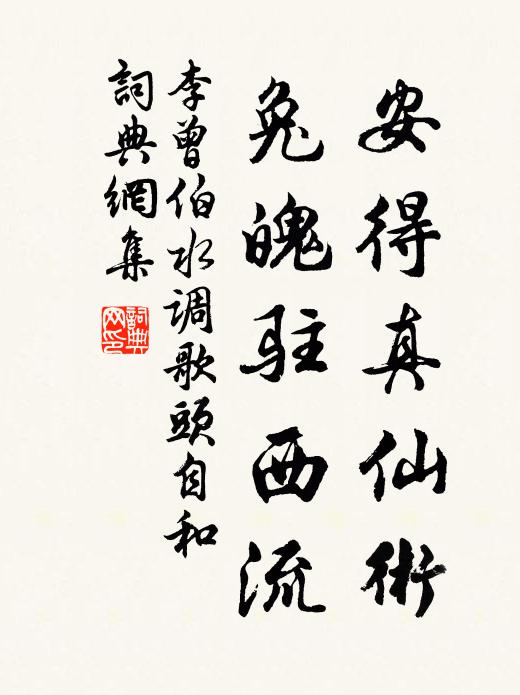 安得真仙術
兔魄駐西流
李曾伯水调歌頭自和
詞典網集
詞典
网印